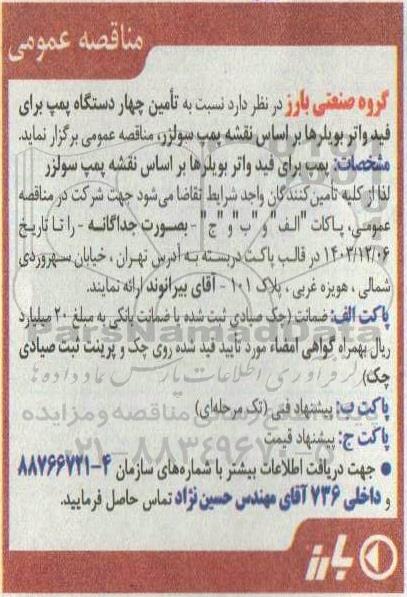 مناقصه عمومی
گروه صنعتی بارز در نظر دارد نسبت به تأمین چهار دستگاه پمپ برای
فید واتر بویلرها بر اساس نقشه پمپ سولزر، مناقصه عمومی برگزار نماید.
مشخصات: پمپ برای فید واتر بویلرها بر اساس نقشه پمپ سولزر
لذا از کلیه تأمین کنندگان واجد شرایط تقاضا می‌شود جهت شرکت در مناقصه
عمومی، پاکات "الف" و "ب" و "ج" - بصورت جداگانه - را تا تاریخ
۱۴۰۳/۱۲/۰۶ در قالب پاکت دربسته به آدرس تهران ، خیابان سهروردی
شمالی ، هویزه غربی ، پلاک ۱۰۱ - آقای بیرانوند ارائه نمایند.
پاکت الف: ضمانت (چک صیادی ثبت شده یا ضمانت بانکی به مبلغ ۲۰ میلیارد
ریال بهمراه گواهی امضاء مورد تأیید قید شده روی چک و پرینت ثبت صیادی
چک)
پاکت ب: پیشنهاد فنی (تک مرحله‌ای)
پاکت ج: پیشنهاد قیمت
● جهت دریافت اطلاعات بیشتر با شماره‌های سازمان ۴-۸۸۷۶۶۷۲۱
و داخلی ۷۳۶ آقای مهندس حسین نژاد تماس حاصل فرمایید.
بارز
ParsNamadData
۰۲۱-۸۸۳۴۹۶۷۰-۵